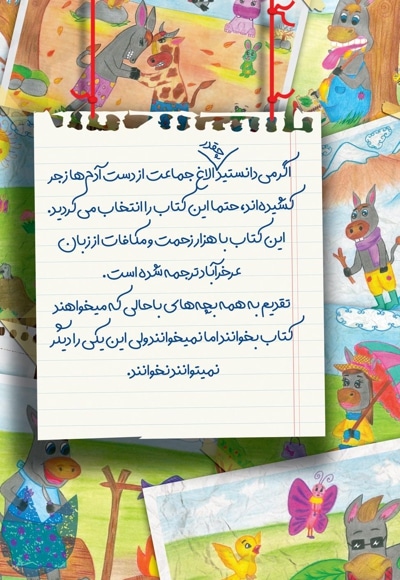 چقدر
اگر می دانستید الاغ جماعت از دست آدم ها زجر
کشیده اند، حتما این کتاب را انتخاب می کردید.
این کتاب با هزار زحمت و مکافات از زبان
عرخرآباد ترجمه شده است.
تقدیم به همه بچه های باحالی که میخواهند
کتاب بخوانند اما نمیخوانند ولی این یکی را دیگر
نمیتوانند نخوانند.